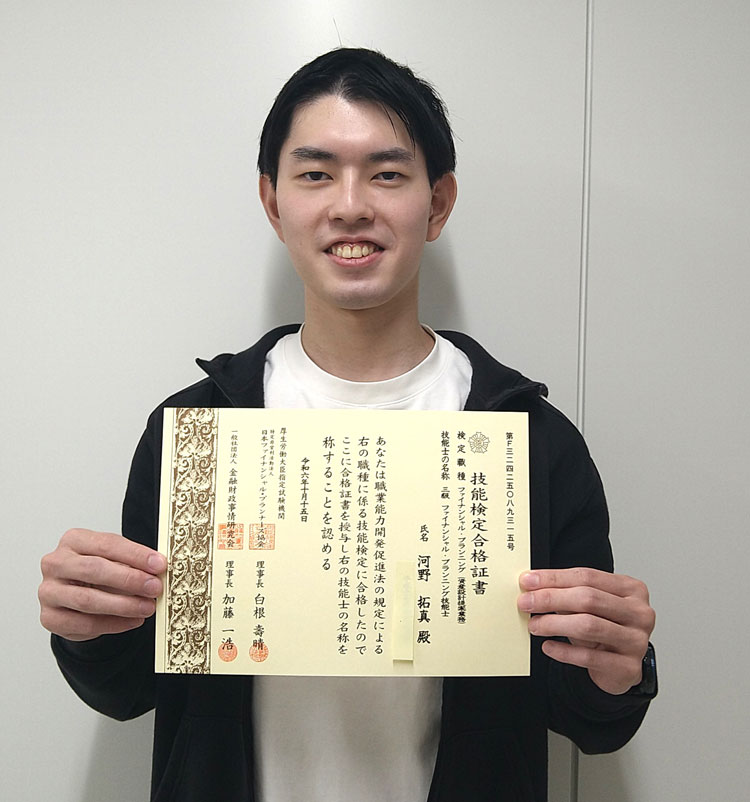 第F三二四二五〇八九三一五号
技能検定合格証書
検定職種 ファイナンシャル・プランニング(資産設計提案業務)
技能士の名称 三級 ファイナンシャル・プランニング技能士
氏名 河野 拓真 殿
あなたは職業能力開発促進法の規定による
右の職種に係る技能検定に合格したので
ここに合格証書を授与し右の技能士の名称を
称することを認める
令和六年十月十五日
厚生労働大臣指定試験機関
特定非営利活動法人
日本ファイナンシャル・プランナーズ協会 理事長 白根 壽晴
一般社団法人 金融財政事情研究会 理事長 加藤 一浩